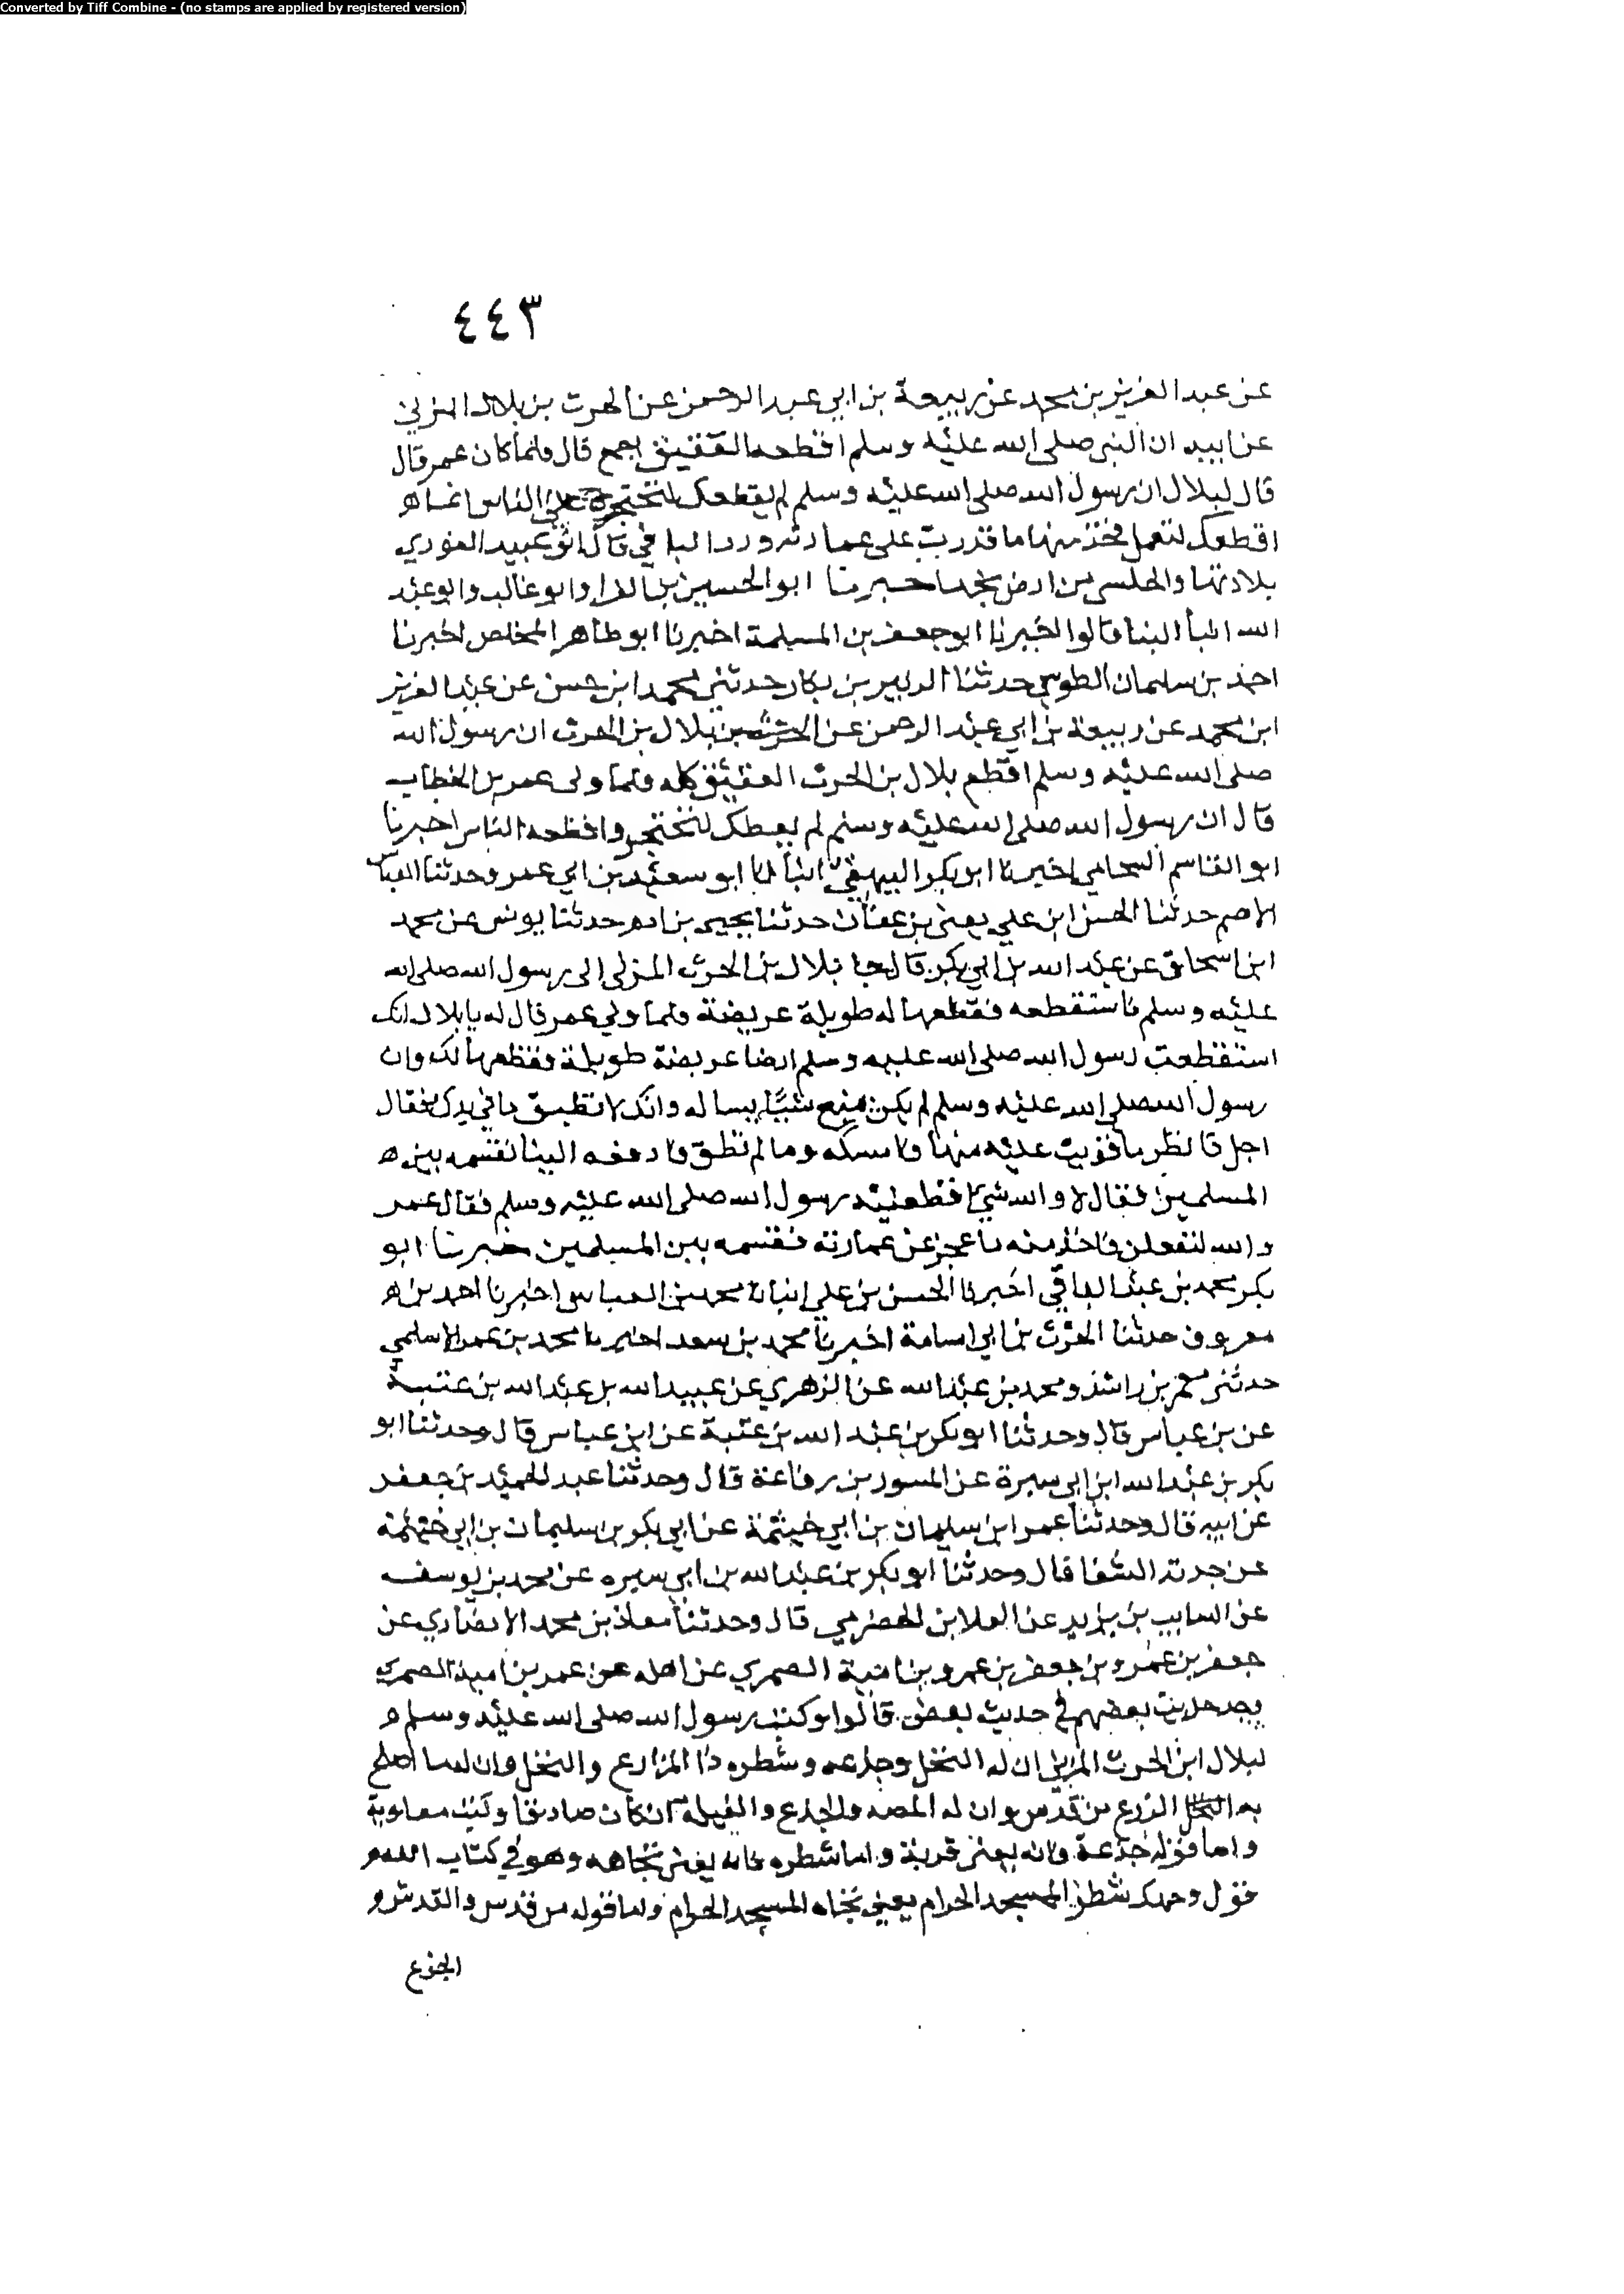 Converted by Tiff Combine - (no stamps are applied by registered version)
٤٤٣
عن عبد العزيز بن محمد عن ربيعة بن ابي عبد الرحمن عن الحرث بن بلال المزني
عن ابيه ان النبي صلى الله عليه وسلم اقطعه العقيق اجمع قال فلما كان عمر قال
قال لبلال ان رسول الله صلى الله عليه وسلم لم يقطعك لتحتجره على الناس انما ه
اقطعك لتعمل فخذ منها ما قدرت على عمارته ورد الباقي قال ابو عبيد الغوري
بلاد تهامة والجلسي من ارض نجد اخبرنا ابو الحسين بن الفرا وابو غالب وابو عبد
الله ابنا البنا قالوا اخبرنا ابو جعفر بن المسلمة اخبرنا ابو طاهر المخلص اخبرنا
احمد بن سليمان الطوسي حدثنا الزبير بن بكار حدثني محمد ابن حسن عن عبد العزيز
ابن محمد عن ربيعة بن ابي عبد الرحمن عن الحرث بن بلال بن الحرث ان رسول الله
صلى الله عليه وسلم اقطع بلال بن الحرث العقيق كله فلما ولى عمر بن الخطاب
قال ان رسول الله صلى الله عليه وسلم لم يعطك لتحتجر واقطعه الناس اخبرنا
ابو القاسم الشحامي اخبرنا ابو بكر البيهقي انبأنا ابو سعيد بن ابي عمر وحدثنا العباس
الاصم حدثنا الحسن ابن علي يعني بن عفان حدثنا يحيى بن ادم حدثنا يونس عن محمد
ابن اسحاق عن عبد الله بن ابي بكر قال جا بلال بن الحرث المزني الى رسول الله صلى الله
عليه وسلم فاستقطعه فقطعها له طويلة عريضة فلما ولي عمر قال له يا بلال انك
استقطعت رسول الله صلى الله عليه وسلم ارضا عريضة طويلة فقطعها لك وان
رسول الله صلى الله عليه وسلم لم يكن يمنع شيئا يساله وانك لا تطيق ما في يدك فقال
اجل قا نظر ما قويت عليه منها فامسكه وما لم تطق فادفعه الينا نقسمه بين ه
المسلمين فقال لا والله شي اقطعنيه رسول الله صلى الله عليه وسلم فقال عمر
والله لتفعلن فاخذ منه ما عجز عن عمارته فقسمه بين المسلمين اخبرنا ابو
بكر محمد بن عبد الباقي اخبرنا الحسن بن علي انبانا محمد بن العباس اخبرنا احمد بن ه
معروف حدثنا الحرث بن ابي اسامة اخبرنا محمد بن سعد اخبرنا محمد بن عمر الاسلمي
حدثني معمر بن راشد ومحمد بن عبد الله عن الزهري عن عبيد الله بن عبد الله بن عتبة
عن بن عباس قال وحدثنا ابو بكر بن عبد الله بن عتبة عن ابن عباس قال وحدثنا ابو
بكر بن عبد الله ابن ابي سبرة عن المسور بن رفاعة قال وحدثنا عبد الحميد بن جعفر
عن ابيه قال وحدثنا عمر ابن سليمان بن ابي خيثمة عن ابي بكر بن سليمان بن ابي خثيمة
عن جدته الشفا قال وحدثنا ابو بكر بن عبد الله بن ابي سبره عن محمد بن يوسف
عن السايب بن يزيد عن العلا بن الحضرمي قال وحدثنا معاذ بن محمد الانصاري عن
جعفر بن عمرو بن جعفر بن عمرو بن امية الضمري عن اهله عن عمر بن امية الضمري
حديث بعضهم في حديث بعض قالوا وكتب رسول الله صلى الله عليه وسلم ه
لبلال ابن الحرث المزني ان له النخل وجزعه وشطره ذا المزارع والنخل وان له ما اصلح
به الزرع من قدس وان له المضه والجزع والغيلة ان كان صادقا وكتب معاوية
واما قوله جزعة فانه يعني قرية واما شطره فانه يعني تجاهه وهو في كتاب الله
فول وجهك شطر المسجد الحرام يعني تجاه المسجد الحرام واما قوله من قدس والقدس و
الجزع